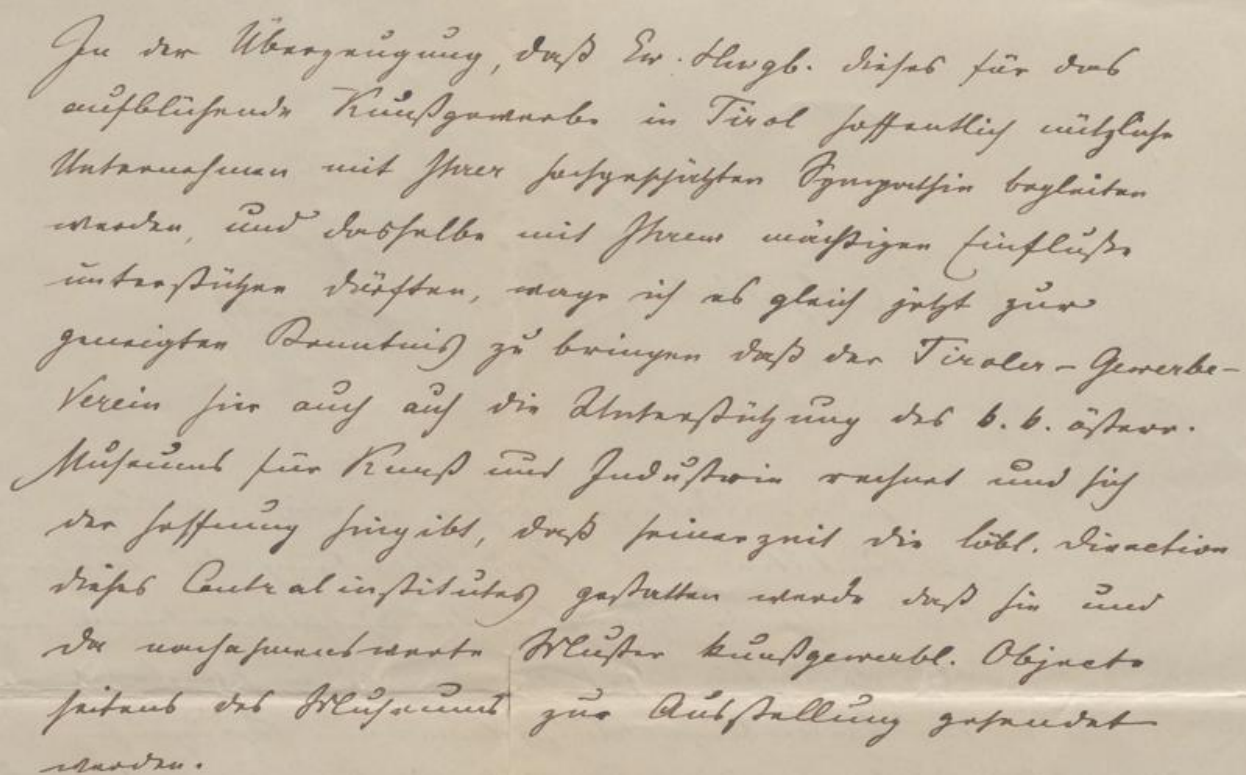 In der Überzeugung, daß Ew. Hwgb. dieses für das
aufblühende Kunstgewerbe in Tirol hoffentlich nützliche
Unternehmen mit Ihrer hochgeschätzten Sympathie begleiten
werden, und dasselbe mit Ihrem mächtigen Einfluße
unterstützen dürften, wage ich es gleich jetzt zur
geneigten Kenntnis zu bringen daß der Tiroler-Gewerbe-
Verein hier auch auf die Unterstützung des k. k. österr.
Museums für Kunst und Industrie rechnet und sich
der Hoffnung hingibt, daß seinerzeit die löbl. Direction
dieses Centralinstitutes gestatten werde daß hie und
da nachahmenswerte Muster kunstgewerbl. Objecte
seitens des Museums zur Ausstellung gesendet
werden.